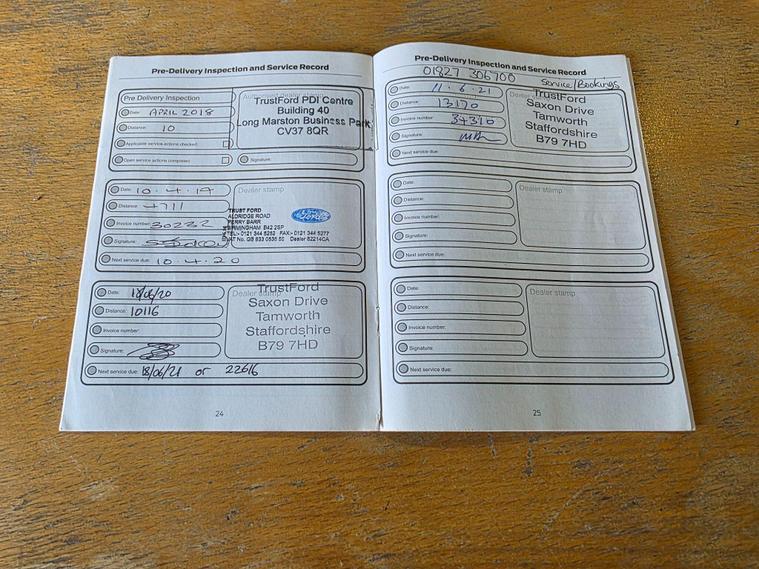 Pre-Delivery Inspection and Service Record
Pre Delivery Inspection
Date: APRIL 2018
Distance: 10
Applicable service actions checked:
Open service actions completed:
Signature:
TrustFord PDI Centre
Building 40
Long Marston Business Park
CV37 8QR
Date: 10.4.19
Distance: 4711
Invoice number: 30232
Signature:
Next service due: 10.4.20
Dealer stamp
TRUST FORD
ALDRIDGE ROAD
PERRY BARR
BIRMINGHAM B42 2SP
TEL:- 0121 344 5252 FAX:- 0121 344 5277
VAT No. GB 833 0536 50 Dealer 82214CA
Ford
Date: 18/06/20
Distance: 10116
Invoice number:
Signature:
Next service due: 18/06/21 or 22616
Dealer stamp
TrustFord
Saxon Drive
Tamworth
Staffordshire
B79 7HD
24
Pre-Delivery Inspection and Service Record
01827 306700 Service/Bookings
Date: 11.6.21
Distance: 13170
Invoice number: 34310
Signature:
Next service due:
TrustFord
Saxon Drive
Tamworth
Staffordshire
B79 7HD
Date:
Distance:
Invoice number:
Signature:
Next service due:
Dealer stamp
Date:
Distance:
Invoice number:
Signature:
Next service due:
Dealer stamp
25